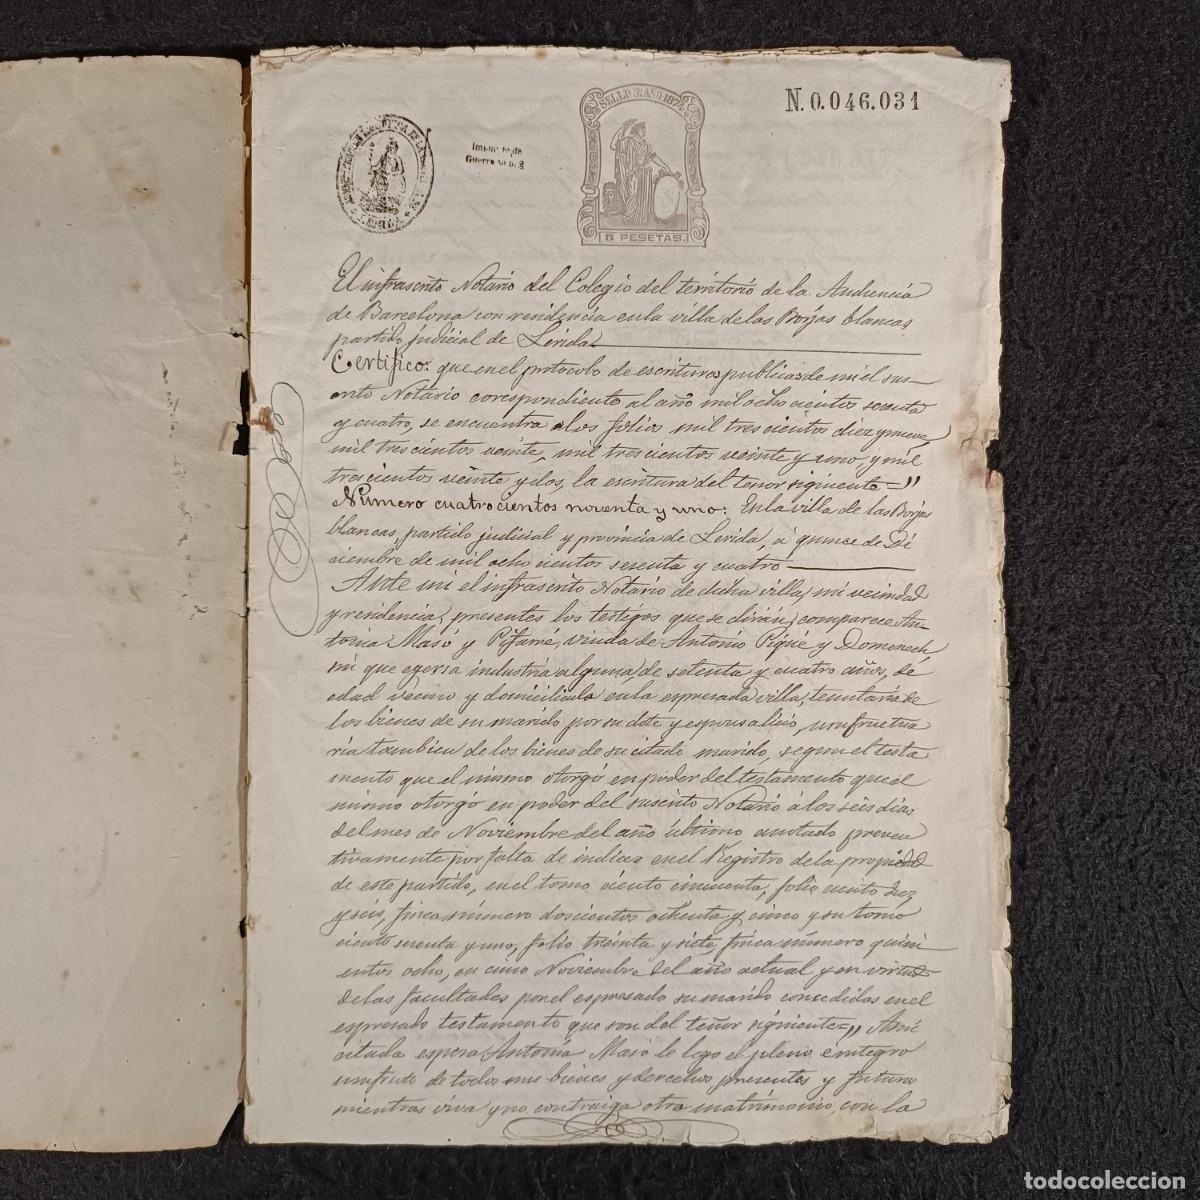 N. 0.046.031
SELLO 3º AÑO 1874
6 PESETAS.
El infrascrito Notario del Colegio del territorio de la Audiencia
de Barcelona con residencia en la villa de las Borjas blancas
partido judicial de Lerida
Certifico: que en el protocolo de escrituras publicas de mi el sus-
crito Notario correspondiente al año mil ochocientos sesenta
y cuatro, se encuentra a los folios mil trescientos diez y nueve,
mil trescientos veinte, mil trescientos veinte y uno, y mil
trescientos veinte y dos, la escritura del tenor siguiente="
Número cuatrocientos noventa y uno: En la villa de las Borjas
blancas, partido judicial y provincia de Lerida, á quince de Di
ciembre de mil ochocientos sesenta y cuatro
Ante mi el infrascrito Notario de dicha villa, mi vecindad
y residencia, presentes los testigos que se dirán, comparece An-
tonia Masó y Pifarré, viuda de Antonio Piqué y Domenech,
ni que egersa industria alguna, de setenta y cuatro años, de
edad vecino y domiciliada en la espresada villa, tenutaria de
los bienes de su marido por su dote y esponsalicio, usufructua
ria tambien de los bienes de su citado marido, segun el testa
mento que el mismo otorgó en poder del testamento que el
mismo otorgó en poder del suscrito Notario á los seis dias
del mes de Noviembre del año último anotado preven
tivamente por falta de indices en el Registro de la propiedad
de este partido, en el tomo ciento cincuenta, folio ciento diez
y seis, finca número doscientos ochenta y cinco y su tomo
ciento sesenta y uno, folio treinta y siete, finca número quini
entos ocho, en cinco Noviembre del año actual y en virtud
de las facultades por el espresado su marido concedidas en el
espresado testamento que son del teñor siguiente=" A mi
citada esposa Antonia Masó le lego el pleno é integro
usufruto de todos mis bienes y derechos presentes y futuros
mientras viva y no contraiga otro matrimonio, con la
todocoleccion